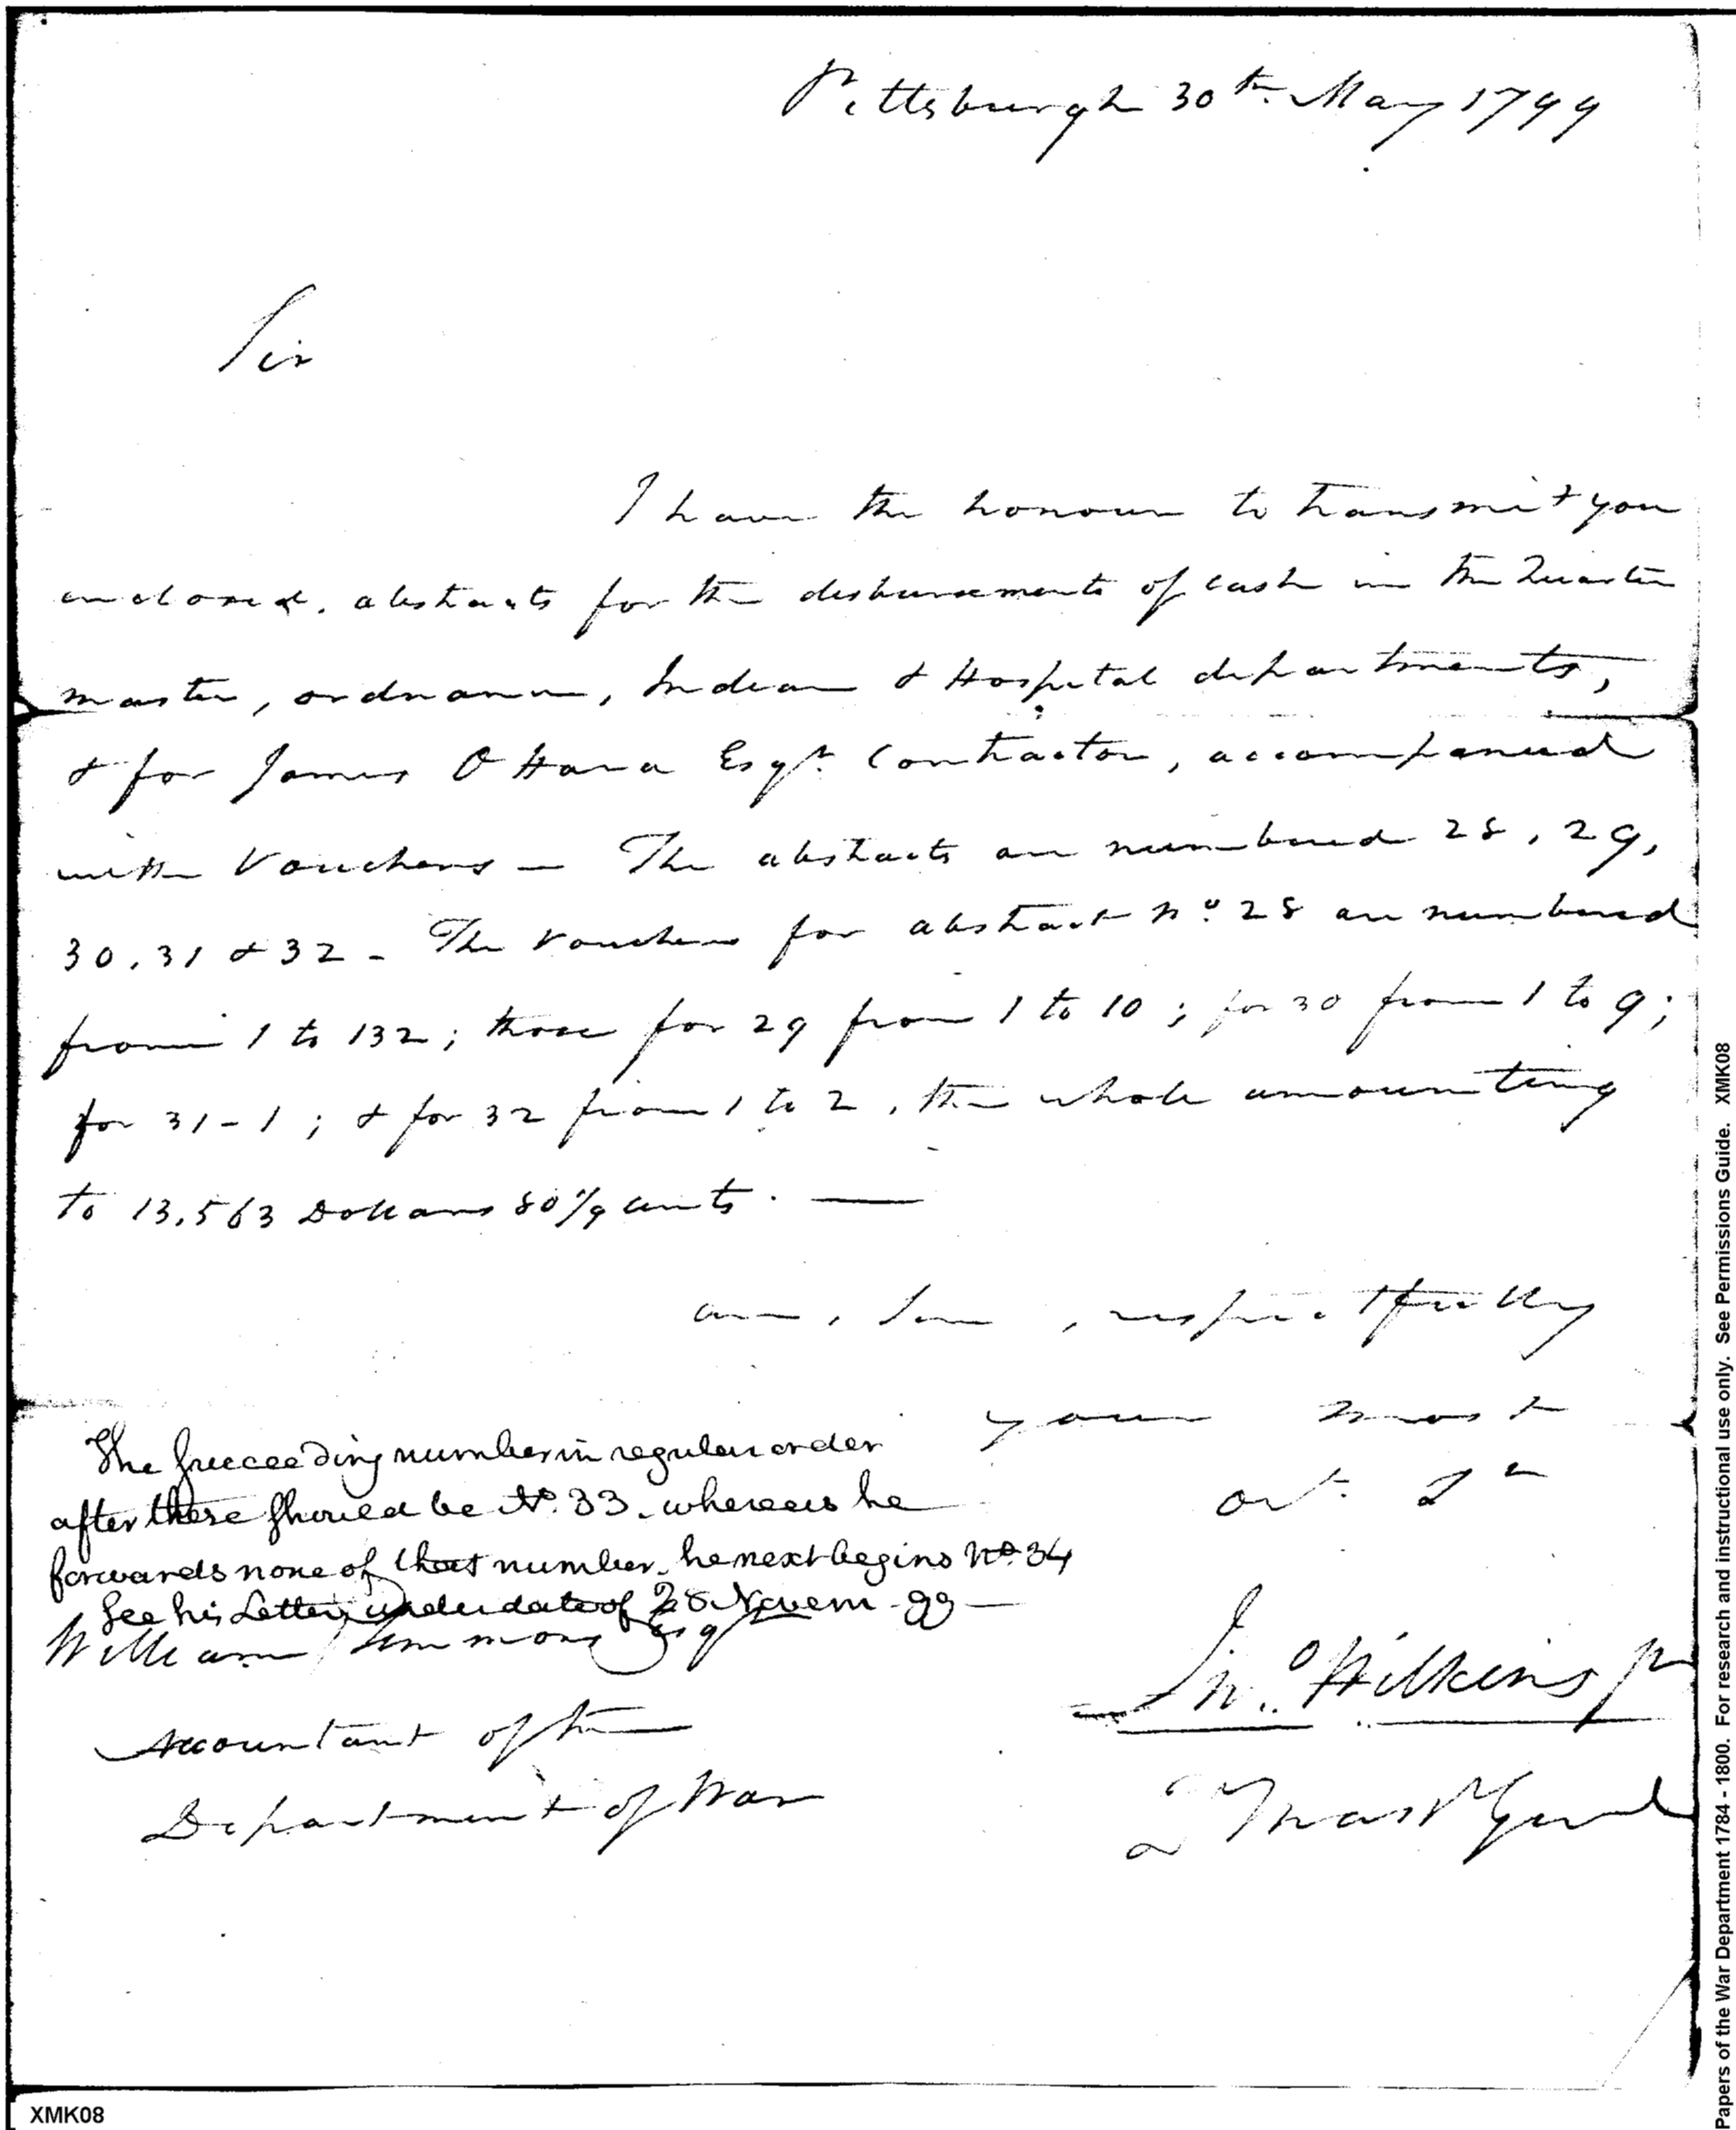 Pittsburgh 30th May 1799
Sir
I have the honour to transmit you
enclosed, abstracts for the disbursements of cash in the Quarter
master, ordnance, Indian & Hospital departments,
& for James O Hara Esqr. Contractor, accompanied
with Vouchers — The abstracts are numbered 28, 29,
30, 31 & 32 - The Vouchers for abstract No. 28 are numbered
from 1 to 132; those for 29 from 1 to 10; for 30 from 1 to 9;
for 31 - 1; & for 32 from 1 to 2, the whole amounting
to 13,563 Dollars 80 cents. —
am, Sir, respectfully
your most
obt.
The succeeding number in regular order
after these should be No. 33. whereas he
forwards none of that number. he next begins No. 34
See his Letter under date of 28 Novem - 99 —
William Simmons Esqr
Accountant of the
Department of War
Jno. Wilkins Jr
Q Mastr Genl
XMK08
Papers of the War Department 1784 - 1800. For research and instructional use only. See Permissions Guide. XMK08